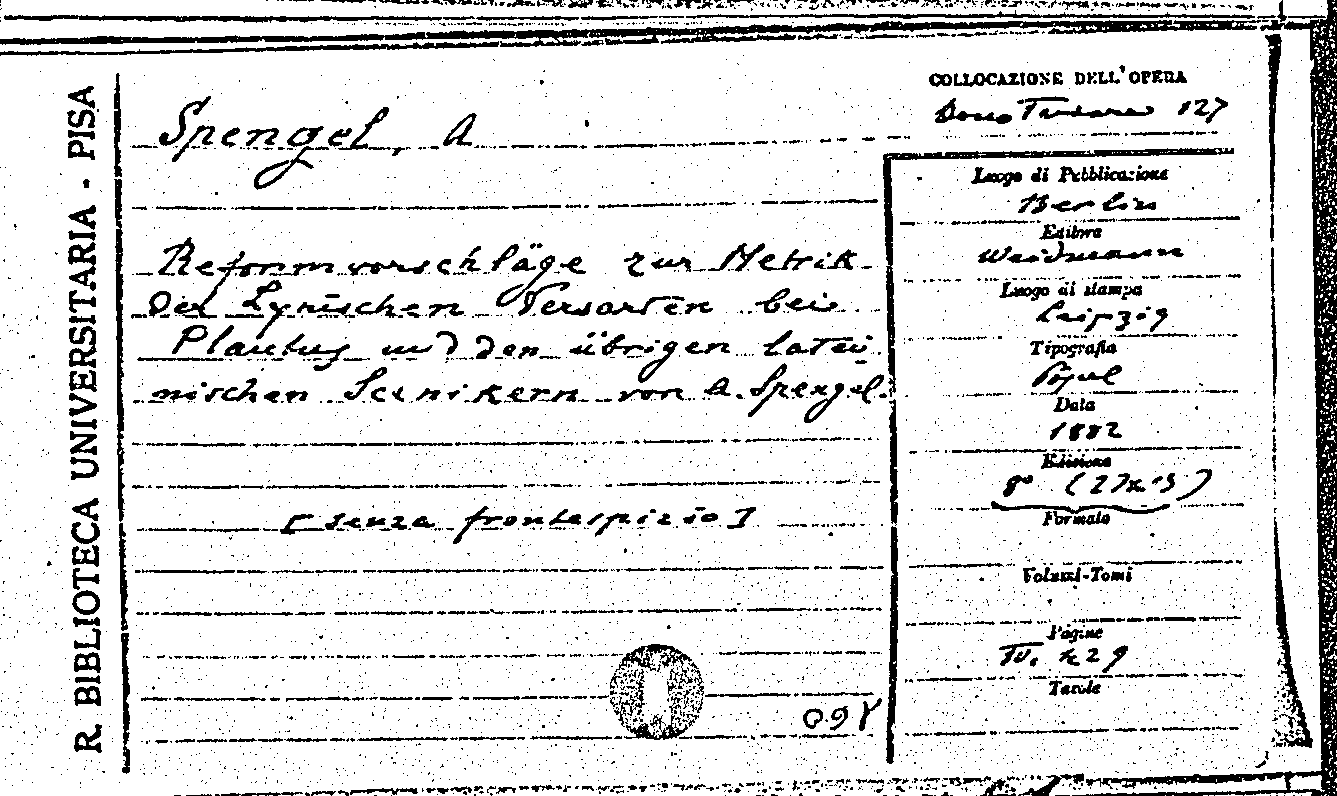 R. BIBLIOTECA UNIVERSITARIA - PISA
Spengel, A
Reformvorschläge zur Metrik
der Lyrischen Versarten bei
Plautus und den übrigen latei
nischen Scenikern von A. Spengel.
[senza frontespizio]
098
COLLOCAZIONE DELL'OPERA
Dono 127
Luogo di Pubblicazione
Berlin
Editore
Weidmann
Luogo di stampa
Leipzig
Tipografia
Data
1882
Edizione
8°
Formato
Volumi-Tomi
Pagine
Tavole